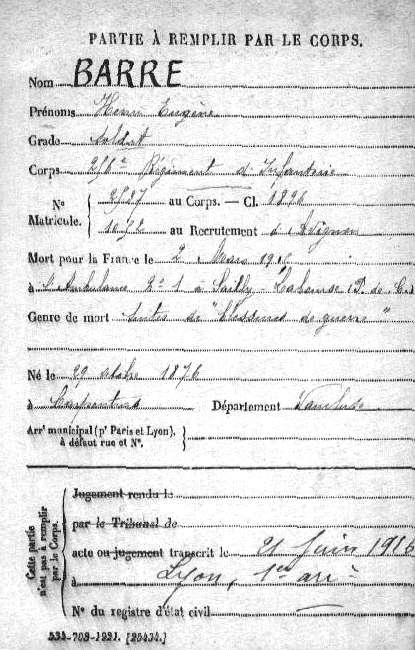 PARTIE À REMPLIR PAR LE CORPS.
Nom BARRE
Prénoms Henri Eugène
Grade soldat
Corps Régiment d'Infanterie
N° Matricule. au Corps. — Cl. 1896
1672 au Recrutement à Avignon
Mort pour la France le 2 Mars 1916
à l'Ambulance 2/1 à Sailly-Labourse (P. de C.)
Genre de mort suites de "blessures de guerre"
Né le 29 octobre 1876
à Carpentras Département Vaucluse
Arr^t municipal (p^r Paris et Lyon), à défaut rue et N°.
Cette partie n'est pas à remplir par le Corps.
Jugement rendu le
par le Tribunal de
acte ou jugement transcrit le 21 Juin 1916
à Lyon, 1er arr^t
N° du registre d'état civil
534-708-1921. [26434.]